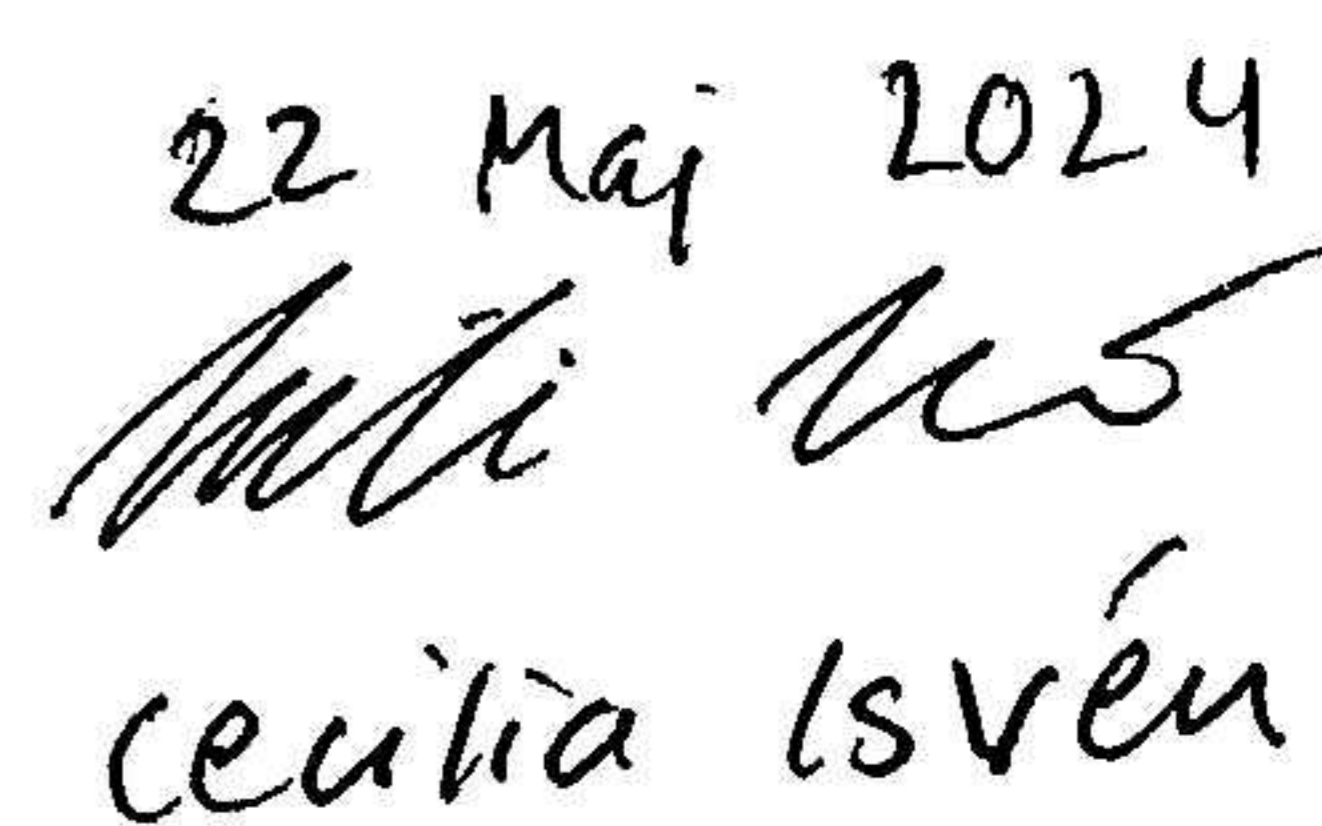 22 Maj 2024
Cecilia Isvén